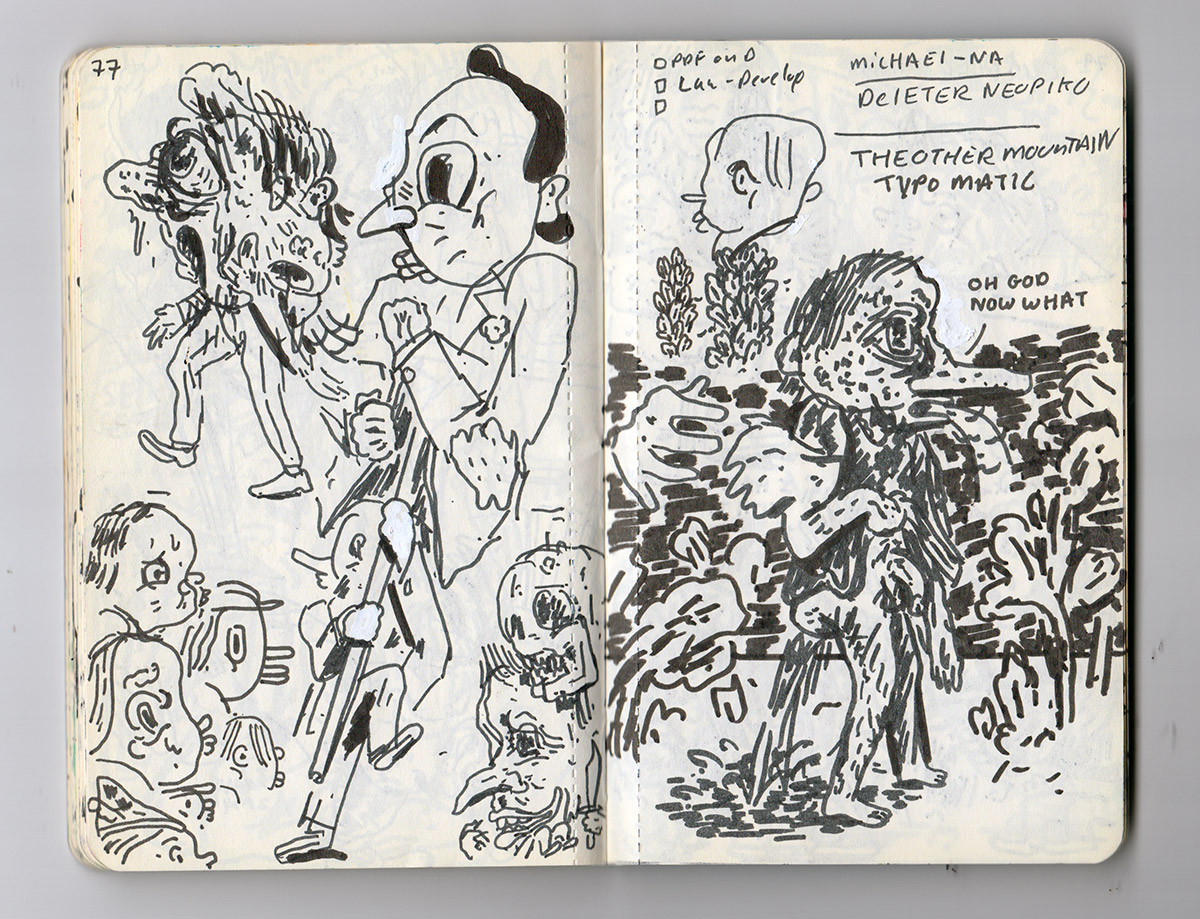 77
PDF on D
Lan - Develop
MiCHAEl - NA
DElETER NEOPIKO
THE OTHER MOUNTAIN
TYPO MATIC
OH GOD
NOW WHAT